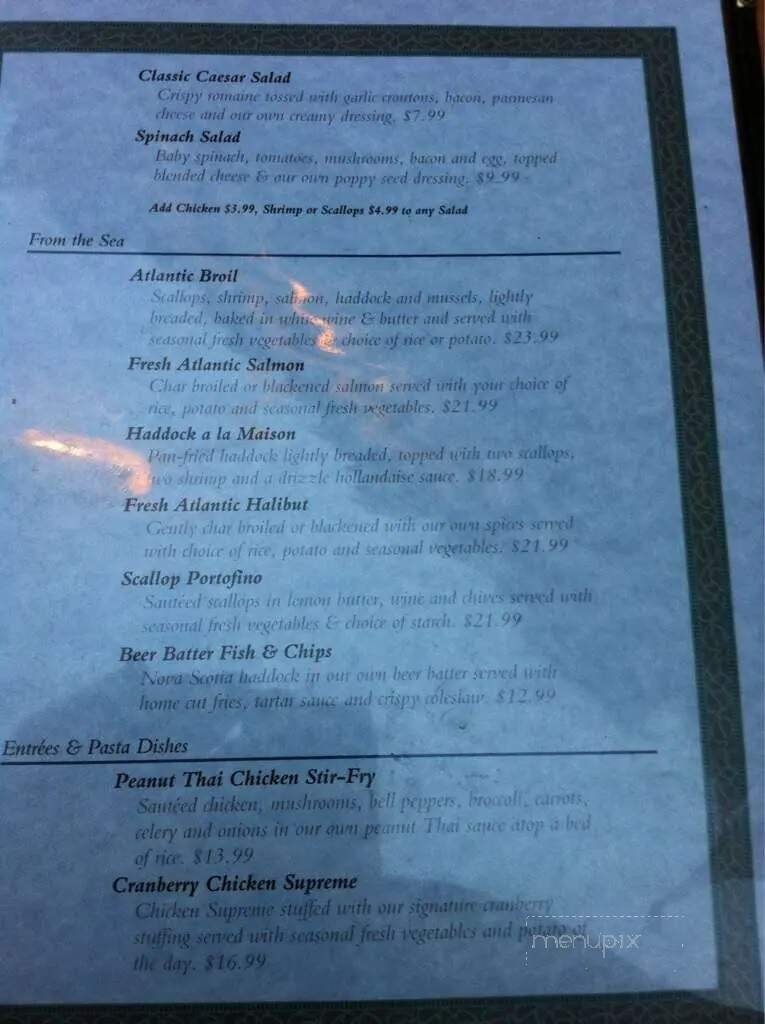 Classic Caesar Salad
Crispy romaine tossed with garlic croutons, bacon, parmesan
cheese and our own creamy dressing. $7.99
Spinach Salad
Baby spinach, tomatoes, mushrooms, bacon and egg, topped
blended cheese & our own poppy seed dressing. $9.99
Add Chicken $3.99, Shrimp or Scallops $4.99 to any Salad
From the Sea
Atlantic Broil
Scallops, shrimp, salmon, haddock and mussels, lightly
breaded, baked in white wine & butter and served with
seasonal fresh vegetables & choice of rice or potato. $23.99
Fresh Atlantic Salmon
Char broiled or blackened salmon served with your choice of
rice, potato and seasonal fresh vegetables. $21.99
Haddock a la Maison
Pan-fried haddock lightly breaded, topped with two scallops,
two shrimp and a drizzle hollandaise sauce. $18.99
Fresh Atlantic Halibut
Gently char broiled or blackened with our own spices served
with choice of rice, potato and seasonal vegetables. $21.99
Scallop Portofino
Sautéed scallops in lemon butter, wine and chives served with
seasonal fresh vegetables & choice of starch. $21.99
Beer Batter Fish & Chips
Nova Scotia haddock in our own beer batter served with
home cut fries, tartar sauce and crispy coleslaw. $12.99
Entrées & Pasta Dishes
Peanut Thai Chicken Stir-Fry
Sautéed chicken, mushrooms, bell peppers, broccoli, carrots,
celery and onions in our own peanut Thai sauce atop a bed
of rice. $13.99
Cranberry Chicken Supreme
Chicken Supreme stuffed with our signature cranberry
stuffing served with seasonal fresh vegetables and potato of
the day. $16.99
menupix